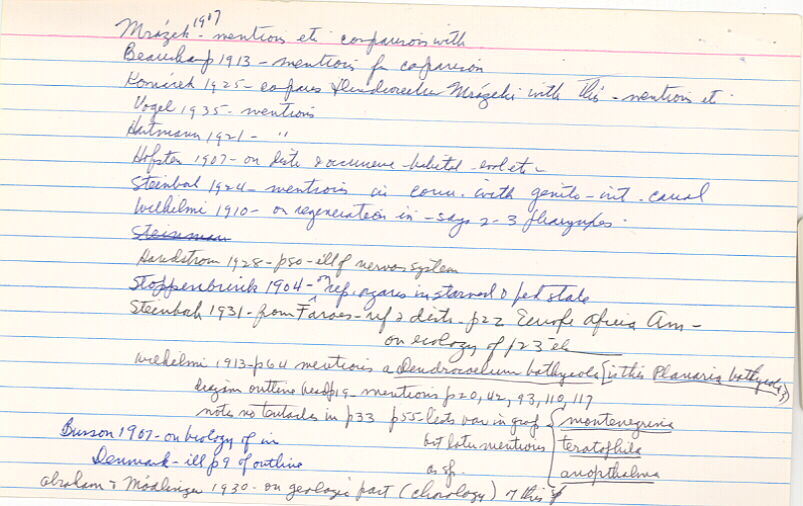 Mrázek 1907 - mentions etc comparison with
Beauchamp 1913 - mentions for comparison
Komárek 1925 - compares Dendrocoelum Mrázeki with this - mentions etc
Vogel 1935 - mentions
Hartmann 1921 - "
Hofsten 1907 - on distr occurrence - habitat - ecol etc -
Steinbok 1924 - mentions in conn. with genito-int. canal
Wilhelmi 1910 - on regeneration in - says 2-3 pharynxes.
Steinmann
Sandstrom 1928 - p80 - ill of nervous system
Stoppenbrink 1904 - rep. organs in starved & fed state
Steinbok 1931 - from Faroes - ref 2 distr - p22 Europe Africa Am -
on ecology of p23 etc
Wilhelmi 1913 - p64 mentions a Dendrocoelum bathycola [is this Planaria bathycola?]
diagram outline head p19 - mentions p20, 42, 93, 110, 117
notes no tentacles in p33 p55 - lists var in graf { montenegrina
but later mentions teratophila
as sp. anophthalma
Busson 1907 - on biology of in
Denmark - ill p9 of outline
Abraham & Modlinger 1930 - on geologic part (chorology) of this sp